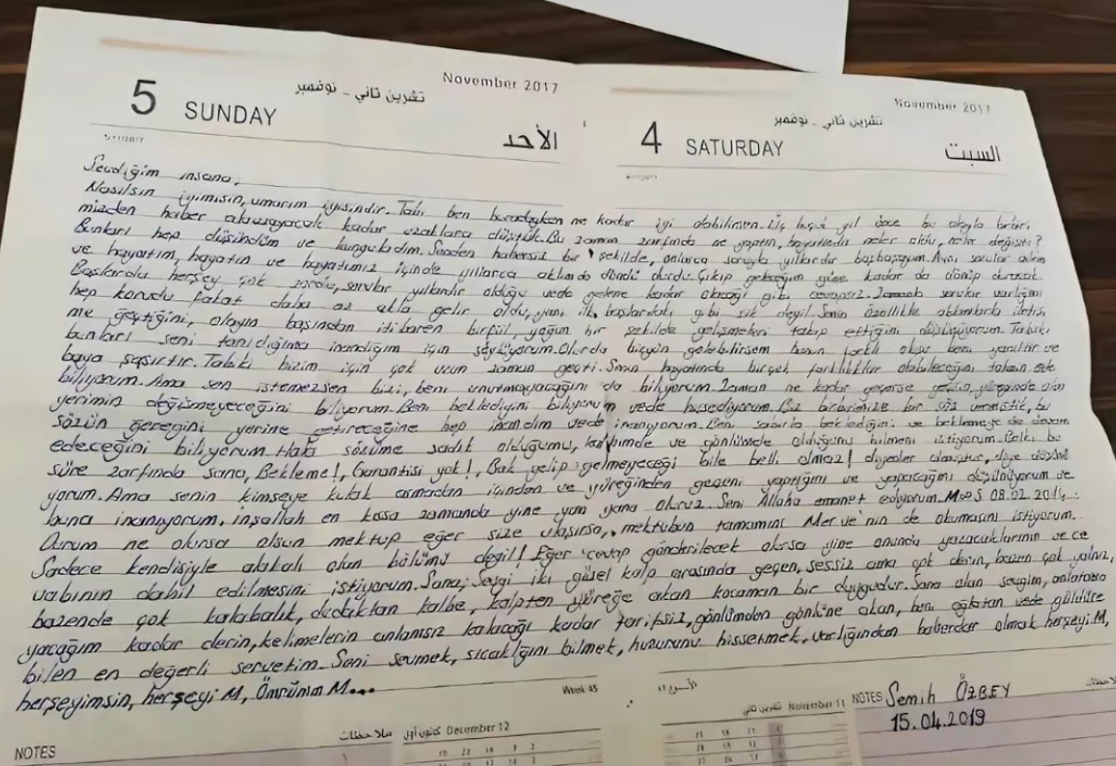 November 2017
تشرين ثاني - نوفمبر
5 SUNDAY
الأحد
November 2017
تشرين ثاني - نوفمبر
4 SATURDAY
السبت
Sevdiğim insana;
Nasılsın iyimisin, umarım iyisindir. Tabi ben buradayken ne kadar iyi olabilirsen. Üç buçuk yıl önce bu olayla birbiri
mizden haber alamayacak kadar uzaklara düştük. Bu zaman zarfında ne yaptın, hayatında neler oldu, neler değişti?
Bunları hep düşündüm ve kurguladım. Senden habersiz bir şekilde, onlarca soruyla yıllardır başbaşayım. Aynı sorular
ve hayatım, hayatın ve hayatımız içinde yıllarca aklımda döndü durdu. Çıkıp geleceğim güne kadar da dönüp duracak.
Başlarda herşey çok zordu, sorular yıllardır olduğu vede gelene kadar olacağı gibi cevapsız. Zamanla sorular varlığını
hep korudu fakat daha az akla gelir oldu, yani ilk başlardaki gibi sık değil. Senin özellikle ablamlarla iletişi
me geçtiğini, olayın başından itibaren birçok yoğun bir şekilde gelişmeleri takip ettiğini düşünüyorum. Tabiki
bunları seni tanıdığıma inandığım için söylüyorum. Olurda birgün gelebilirsem bunun farklı oluşu beni yanıltır ve
baya şaşırtır. Tabiki bizim için çok uzun zaman geçti. Senin hayatında birçok farklılıklar olabileceğini tahmin ede
biliyorum. Ama sen istemezsen bizi, beni unutmayacağını da biliyorum. Zaman ne kadar geçerse geçsin, yüreğinde olan
yerimin değişmeyeceğini biliyorum. Beni beklediğini biliyorum vede hissediyorum. Biz birbirimize bir söz vermiştik, bu
sözün gereğini yerine getireceğine hep inandım vede inanıyorum. Beni sabırla beklediğini ve beklemeye de devam
edeceğini biliyorum. Hala sözüme sadık olduğumu, kalbimde ve gönlümde olduğunu bilmeni istiyorum. Belki bu
süre zarfında sana, Bekleme!, Garantisi yok!, Bak gelip gelmeyeceği bile belli olmaz! diyenler olmuştur, diye düşünü
yorum. Ama senin kimseye kulak asmadan içinden ve yüreğinden geçeni yaptığını ve yapacağını düşünüyorum ve
buna inanıyorum, inşallah en kısa zamanda yine yan yana oluruz. Seni Allaha emanet ediyorum. M∞S 08.02.2014
Durum ne olursa olsun mektup eğer size ulaşırsa, mektubun tamamını Merve'nin de okumasını istiyorum.
Sadece kendisiyle alakalı olan bölümü değil! Eğer cevap gönderilecek olursa yine onunda yazacaklarının ve ce
vabının dahil edilmesini istiyorum. Sana; Sevgi iki güzel kalp arasında geçen, sessiz ama çok derin, bazen çok yalnız,
bazende çok kalabalık, dudaktan kalbe, kalpten yüreğe akan kocaman bir duygudur. Sana olan sevgim, anlatama
yacağım kadar derin, kelimelerin anlamsız kalacağı kadar tarifsiz, gönlümden gönlüne akan, beni ağlatan vede güldüre
bilen en değerli servetim. Seni sevmek, sıcaklığını bilmek, huzurunu hissetmek, varlığından haberdar olmak herşeyi M,
herşeyimsin, herşeyi M, Ömrümm M...
Week 45
NOTES
ملاحظات
كانون أول December 12
تشرين ثاني November 11
NOTES
Semih ÖZBEY
15.04.2019